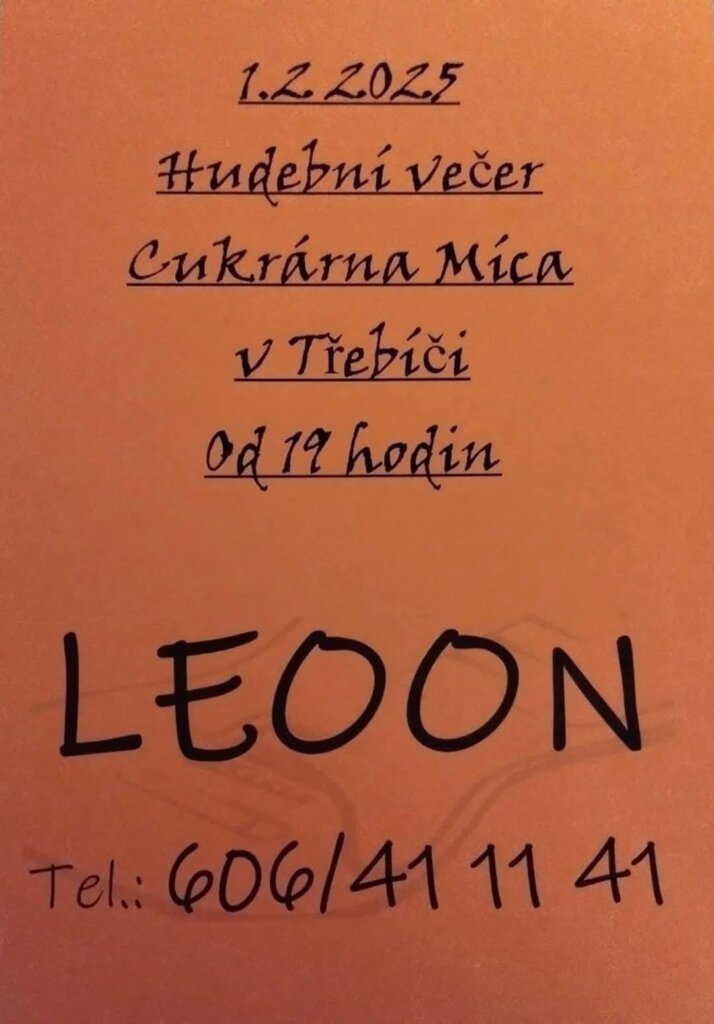 1.2 2025
Hudební večer
Cukrárna Míca
v Třebíči
Od 19 hodin
LEOON
Tel.: 606/41 11 41